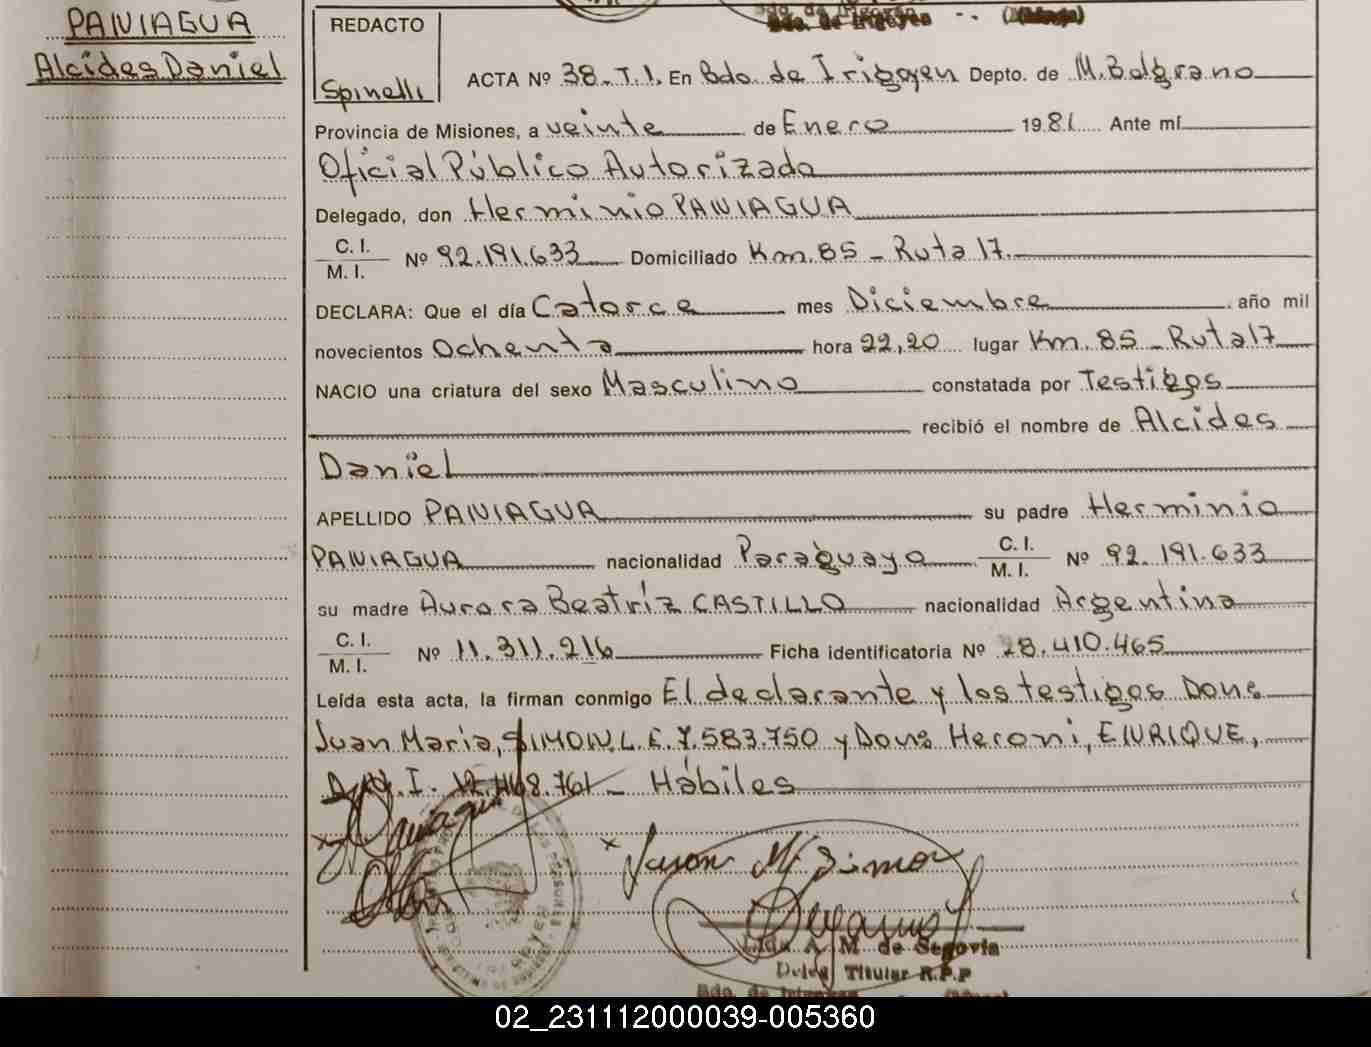 PANIAGUA
Alcides Daniel
REDACTO
Spinelli
ACTA Nº 38-T.I. En Bdo. de Irigoyen Depto. de M. Belgrano
Provincia de Misiones, a veinte de Enero 1981 Ante mí
Oficial Público Autorizado
Delegado, don Herminio PANIAGUA
C. I.
M. I. Nº 92.191.633 Domiciliado Km. 85 - Ruta 17.
DECLARA: Que el día Catorce mes Diciembre año mil
novecientos Ochenta hora 22,20 lugar Km. 85 - Ruta 17
NACIO una criatura del sexo Masculino constatada por Testigos
recibió el nombre de Alcides
Daniel
APELLIDO PANIAGUA su padre Herminio
PANIAGUA nacionalidad Paraguaya C. I.
M. I. Nº 92.191.633
su madre Aurora Beatríz CASTILLO nacionalidad Argentina
C. I.
M. I. Nº 11.311.216 Ficha identificatoria Nº 28.410.465
Leída esta acta, la firman conmigo El declarante y los testigos Dons
Juan María, SIMON, L.E. 7.583.750 y Dons Heroni, ENRIQUE,
D.N.I. 12.468.761 - Hábiles
Juan M Simon
A. M. de Segovia
Deleg Titular R.P.P
Bdo. de Irigoyen
02_231112000039-005360